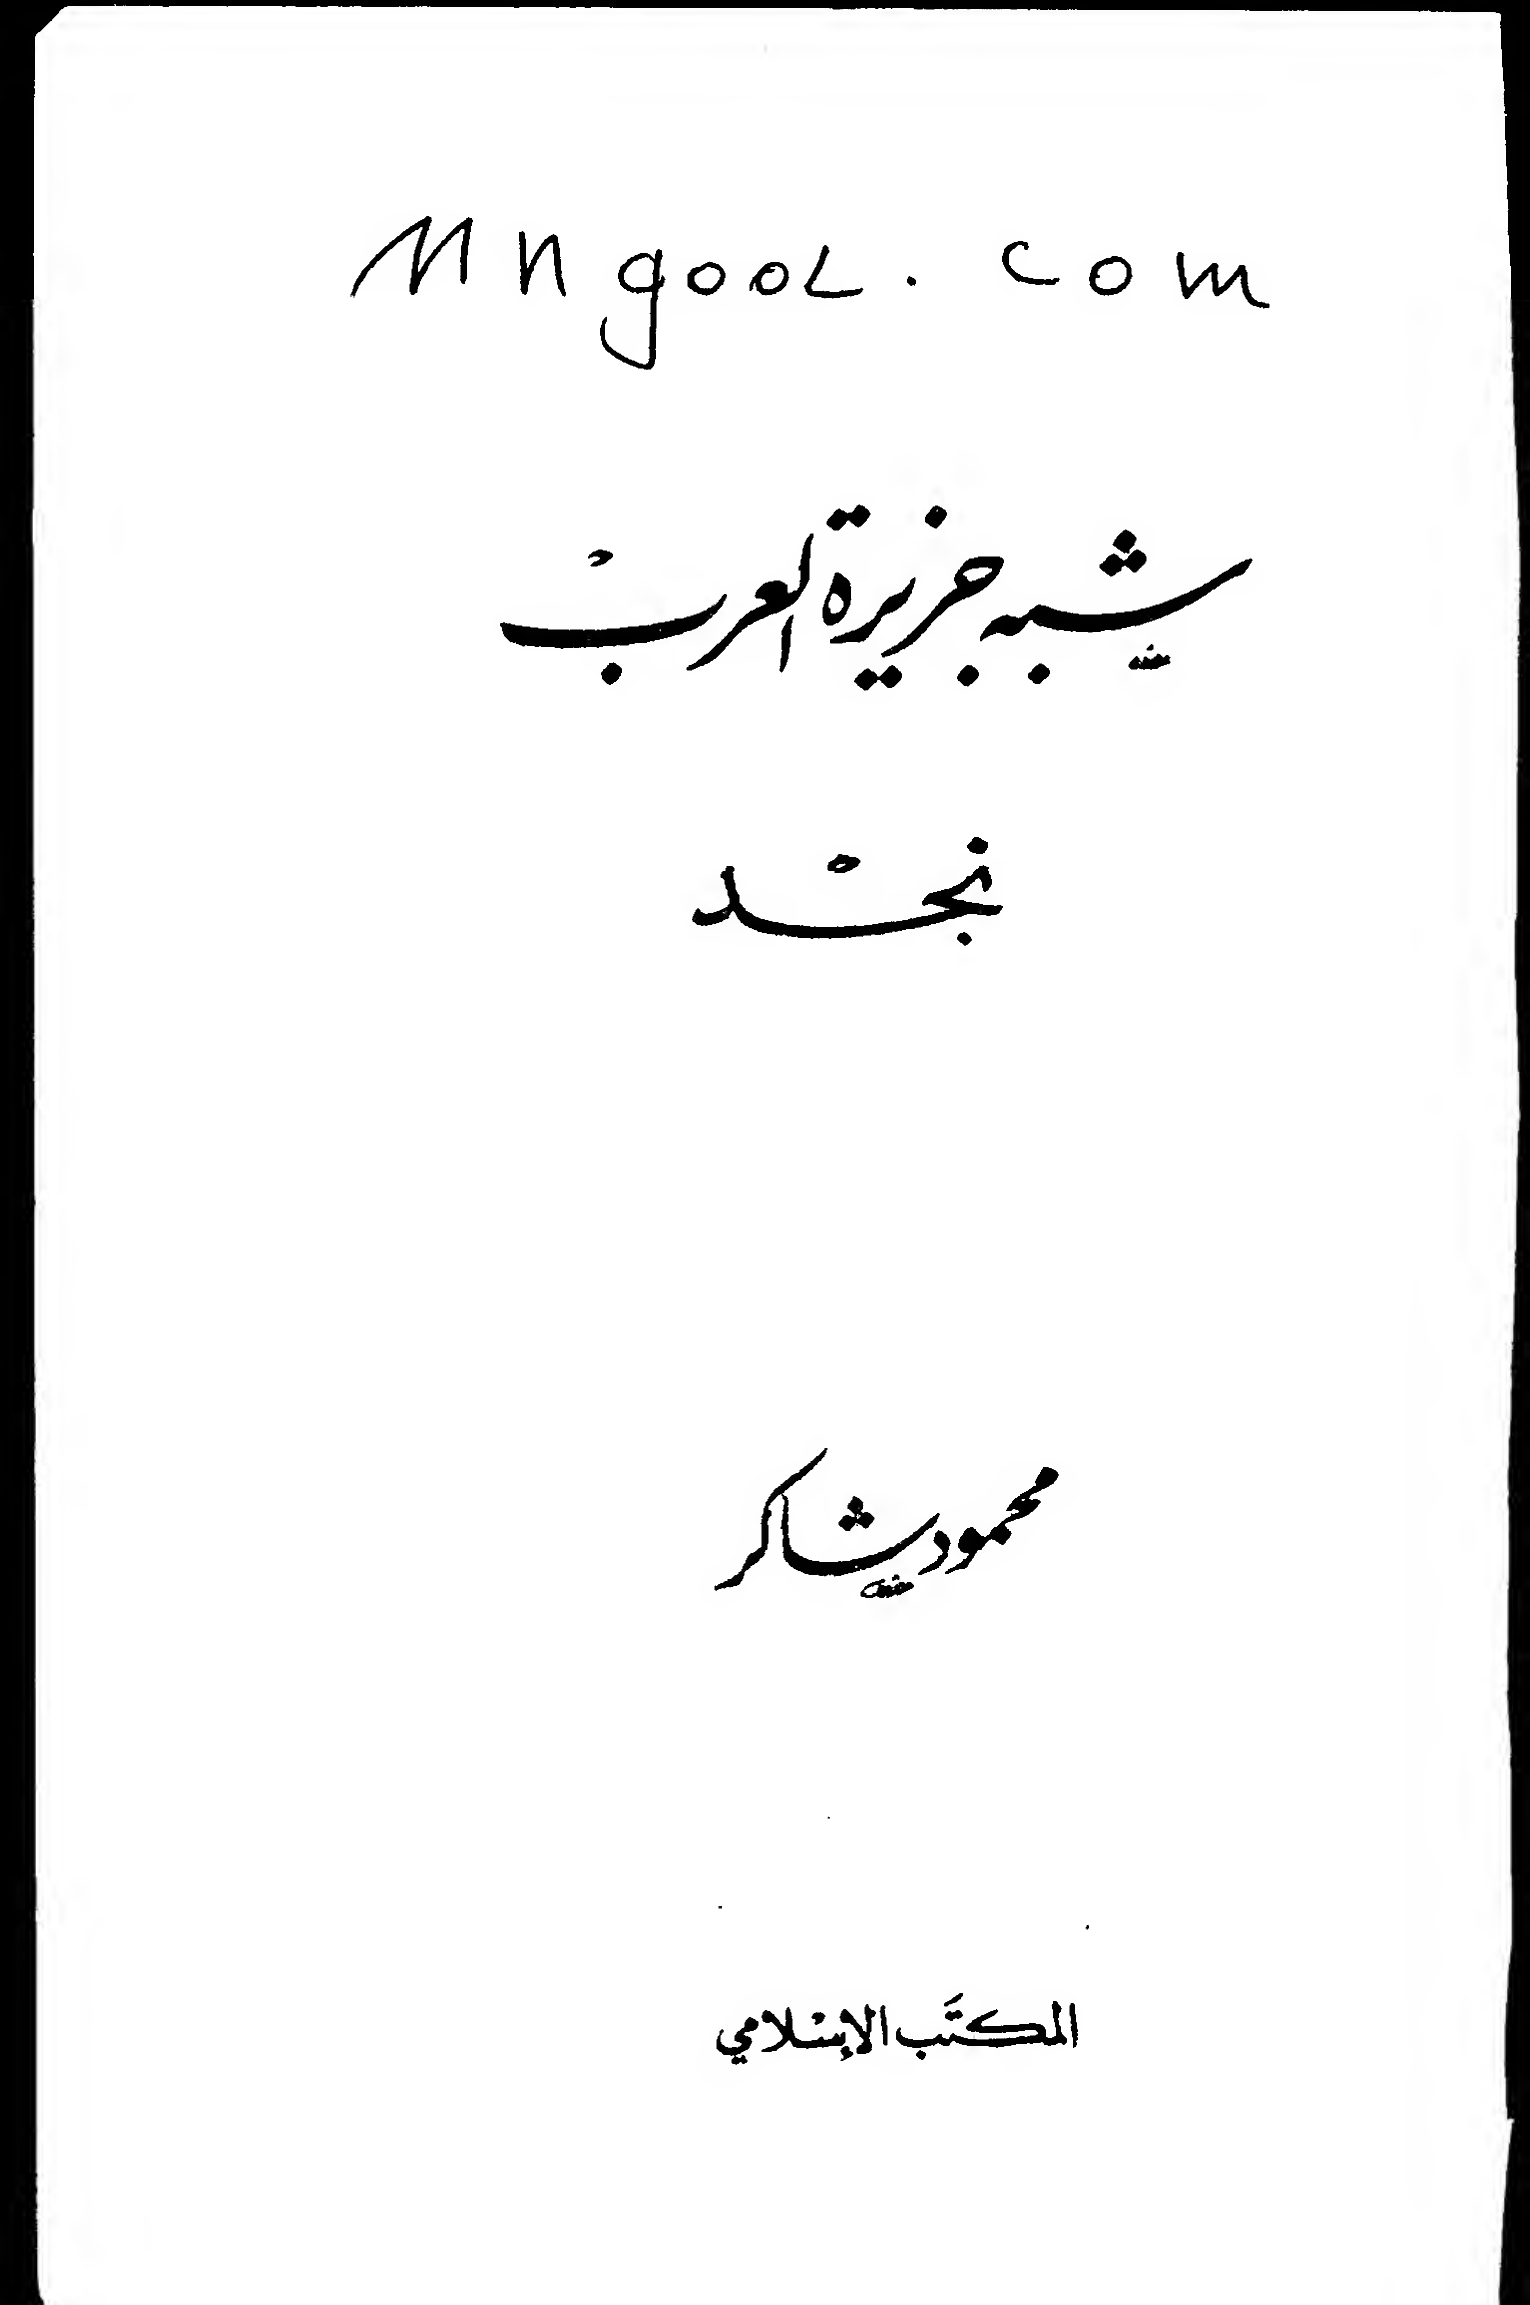 Mngool.com
شبه جزيرة العرب
نجد
محمود شاكر
المكتب الإسلامي